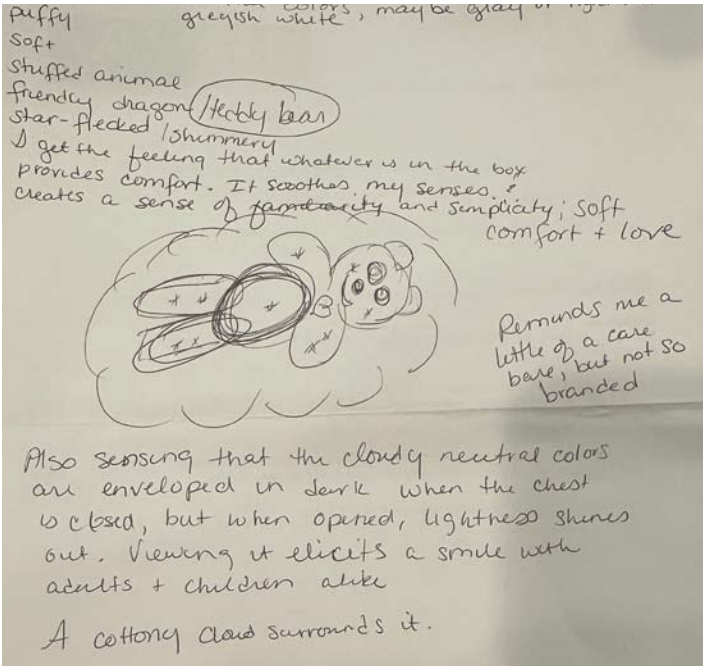 puffy
colors, may be gray or
greyish white,
soft
stuffed animal
friendly dragon /teddy bear
star-flecked /shimmery
I get the feeling that whatever is in the box
provides comfort. It soothes my senses &
creates a sense of familiarity and simplicity; soft
comfort + love
Reminds me a
little of a care
bare, but not so
branded
Also sensing that the cloudy neutral colors
are enveloped in dark when the chest
is closed, but when opened, lightness shines
out. Viewing it elicits a smile with
adults + children alike
A cottony cloud surrounds it.